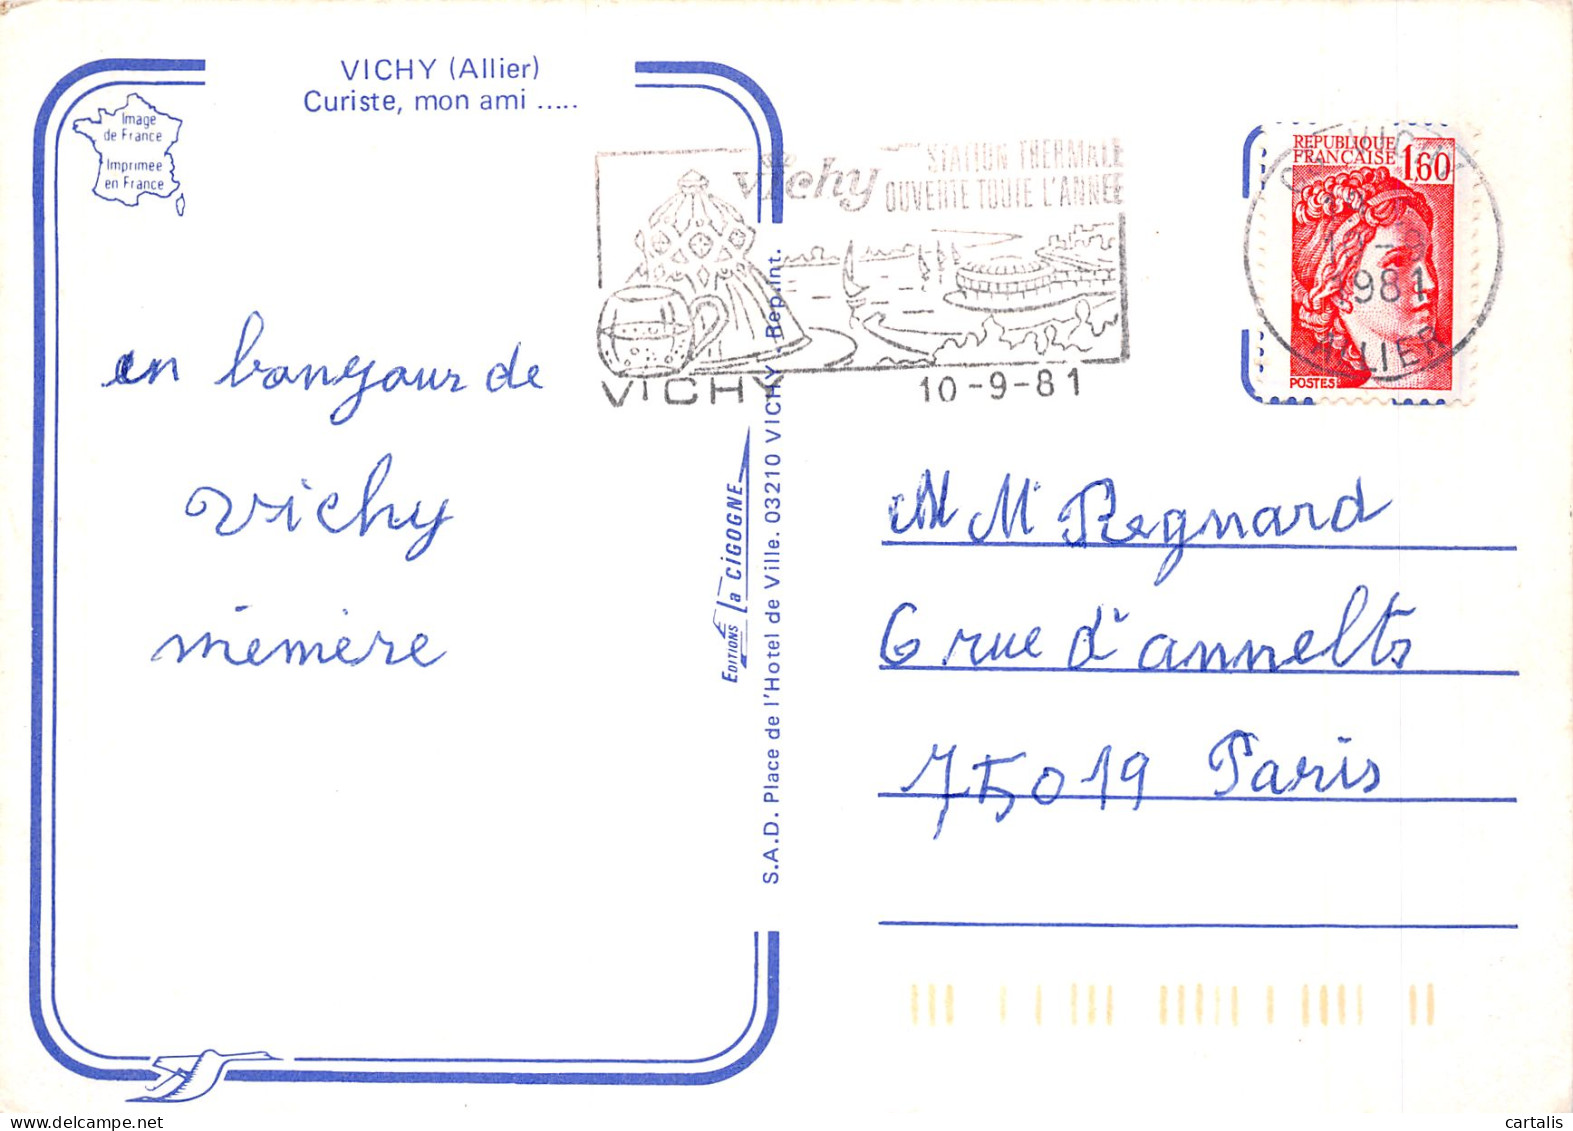 VICHY (Allier)
Curiste, mon ami .....
Image
de France
Imprimée
en France
en bonjour de
Vichy
mémère
Vichy
STATION THERMALE
OUVERTE TOUTE L'ANNEE
VICHY
10-9-81
REPUBLIQUE
FRANCAISE
1,60
POSTES
VICHY
10-9
1981
ALLIER
EDITIONS la CIGOGNE
S.A.D. Place de l'Hotel de Ville. 03210 VICHY - Rep.int.
M M Regnard
6 rue d'annelts
75019 Paris
cartalis
www.delcampe.net